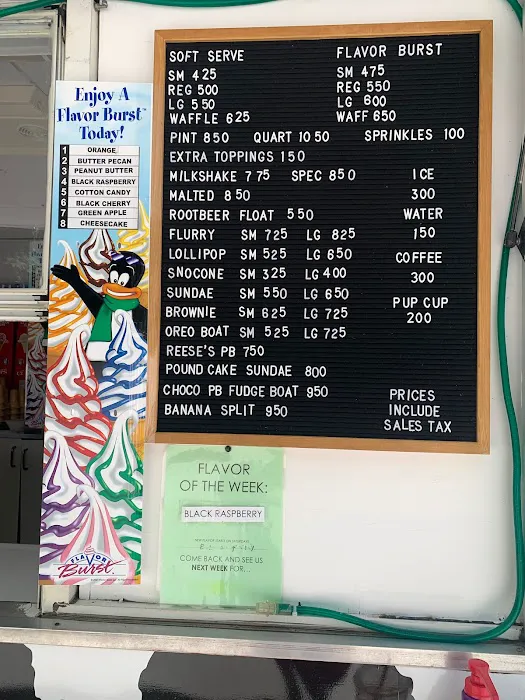 Enjoy A
Flavor Burst™
Today!
1 ORANGE
2 BUTTER PECAN
3 PEANUT BUTTER
4 BLACK RASPBERRY
5 COTTON CANDY
6 BLACK CHERRY
7 GREEN APPLE
8 CHEESECAKE
FLAVOR
Burst
SOFT SERVE
SM 425
REG 500
LG 550
WAFFLE 625
FLAVOR BURST
SM 475
REG 550
LG 600
WAFF 650
PINT 850 QUART 1050 SPRINKLES 100
EXTRA TOPPINGS 150
MILKSHAKE 775 SPEC 850
MALTED 850
ROOTBEER FLOAT 550
FLURRY SM 725 LG 825
LOLLIPOP SM 525 LG 650
SNOCONE SM 325 LG 400
SUNDAE SM 550 LG 650
BROWNIE SM 625 LG 725
OREO BOAT SM 525 LG 725
REESE'S PB 750
POUND CAKE SUNDAE 800
CHOCO PB FUDGE BOAT 950
BANANA SPLIT 950
ICE
300
WATER
150
COFFEE
300
PUP CUP
200
PRICES
INCLUDE
SALES TAX
FLAVOR
OF THE WEEK:
BLACK RASPBERRY
COME BACK AND SEE US
NEXT WEEK FOR...